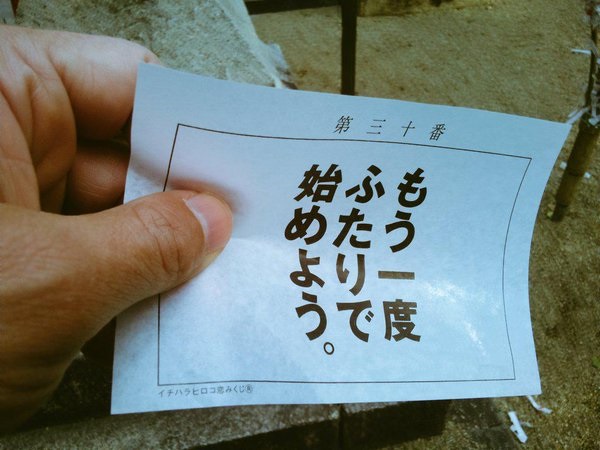 第三十番
もう一度
ふたりで
始めよう。
イチハラヒロコ恋みくじ®